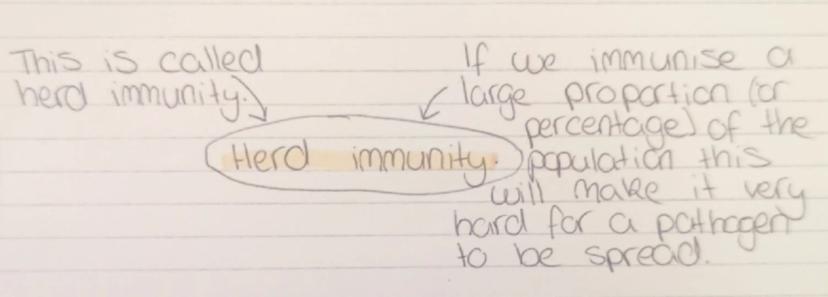 This is called
herd immunity.
Herd immunity.
If we immunise a
large proportion (or
percentage) of the
population this
will make it very
hard for a pathogen
to be spread.